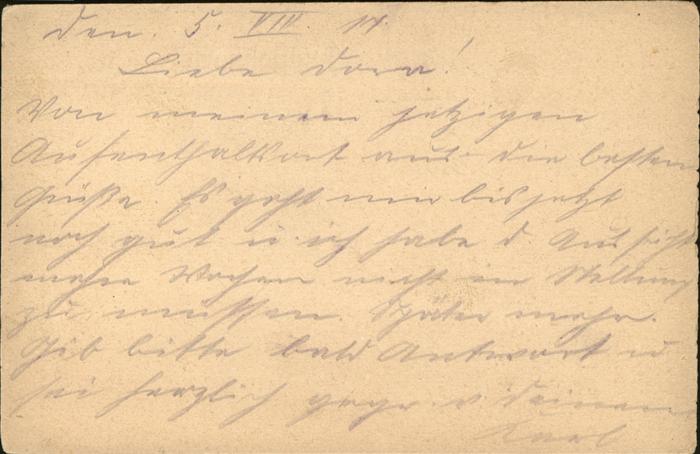 Den. 5. VIII. 17.
Liebe Dora!
Von meinem jetzigen
Aufenthaltsort aus die besten
Grüße. Es geht mir bis jetzt
noch gut u. ich habe d. Aussicht
mehre Wochen nicht in Stellung
zu müssen. Später mehr.
Gib bitte bald Antwort u
sei herzlich gegr. v. Deinem
Karl